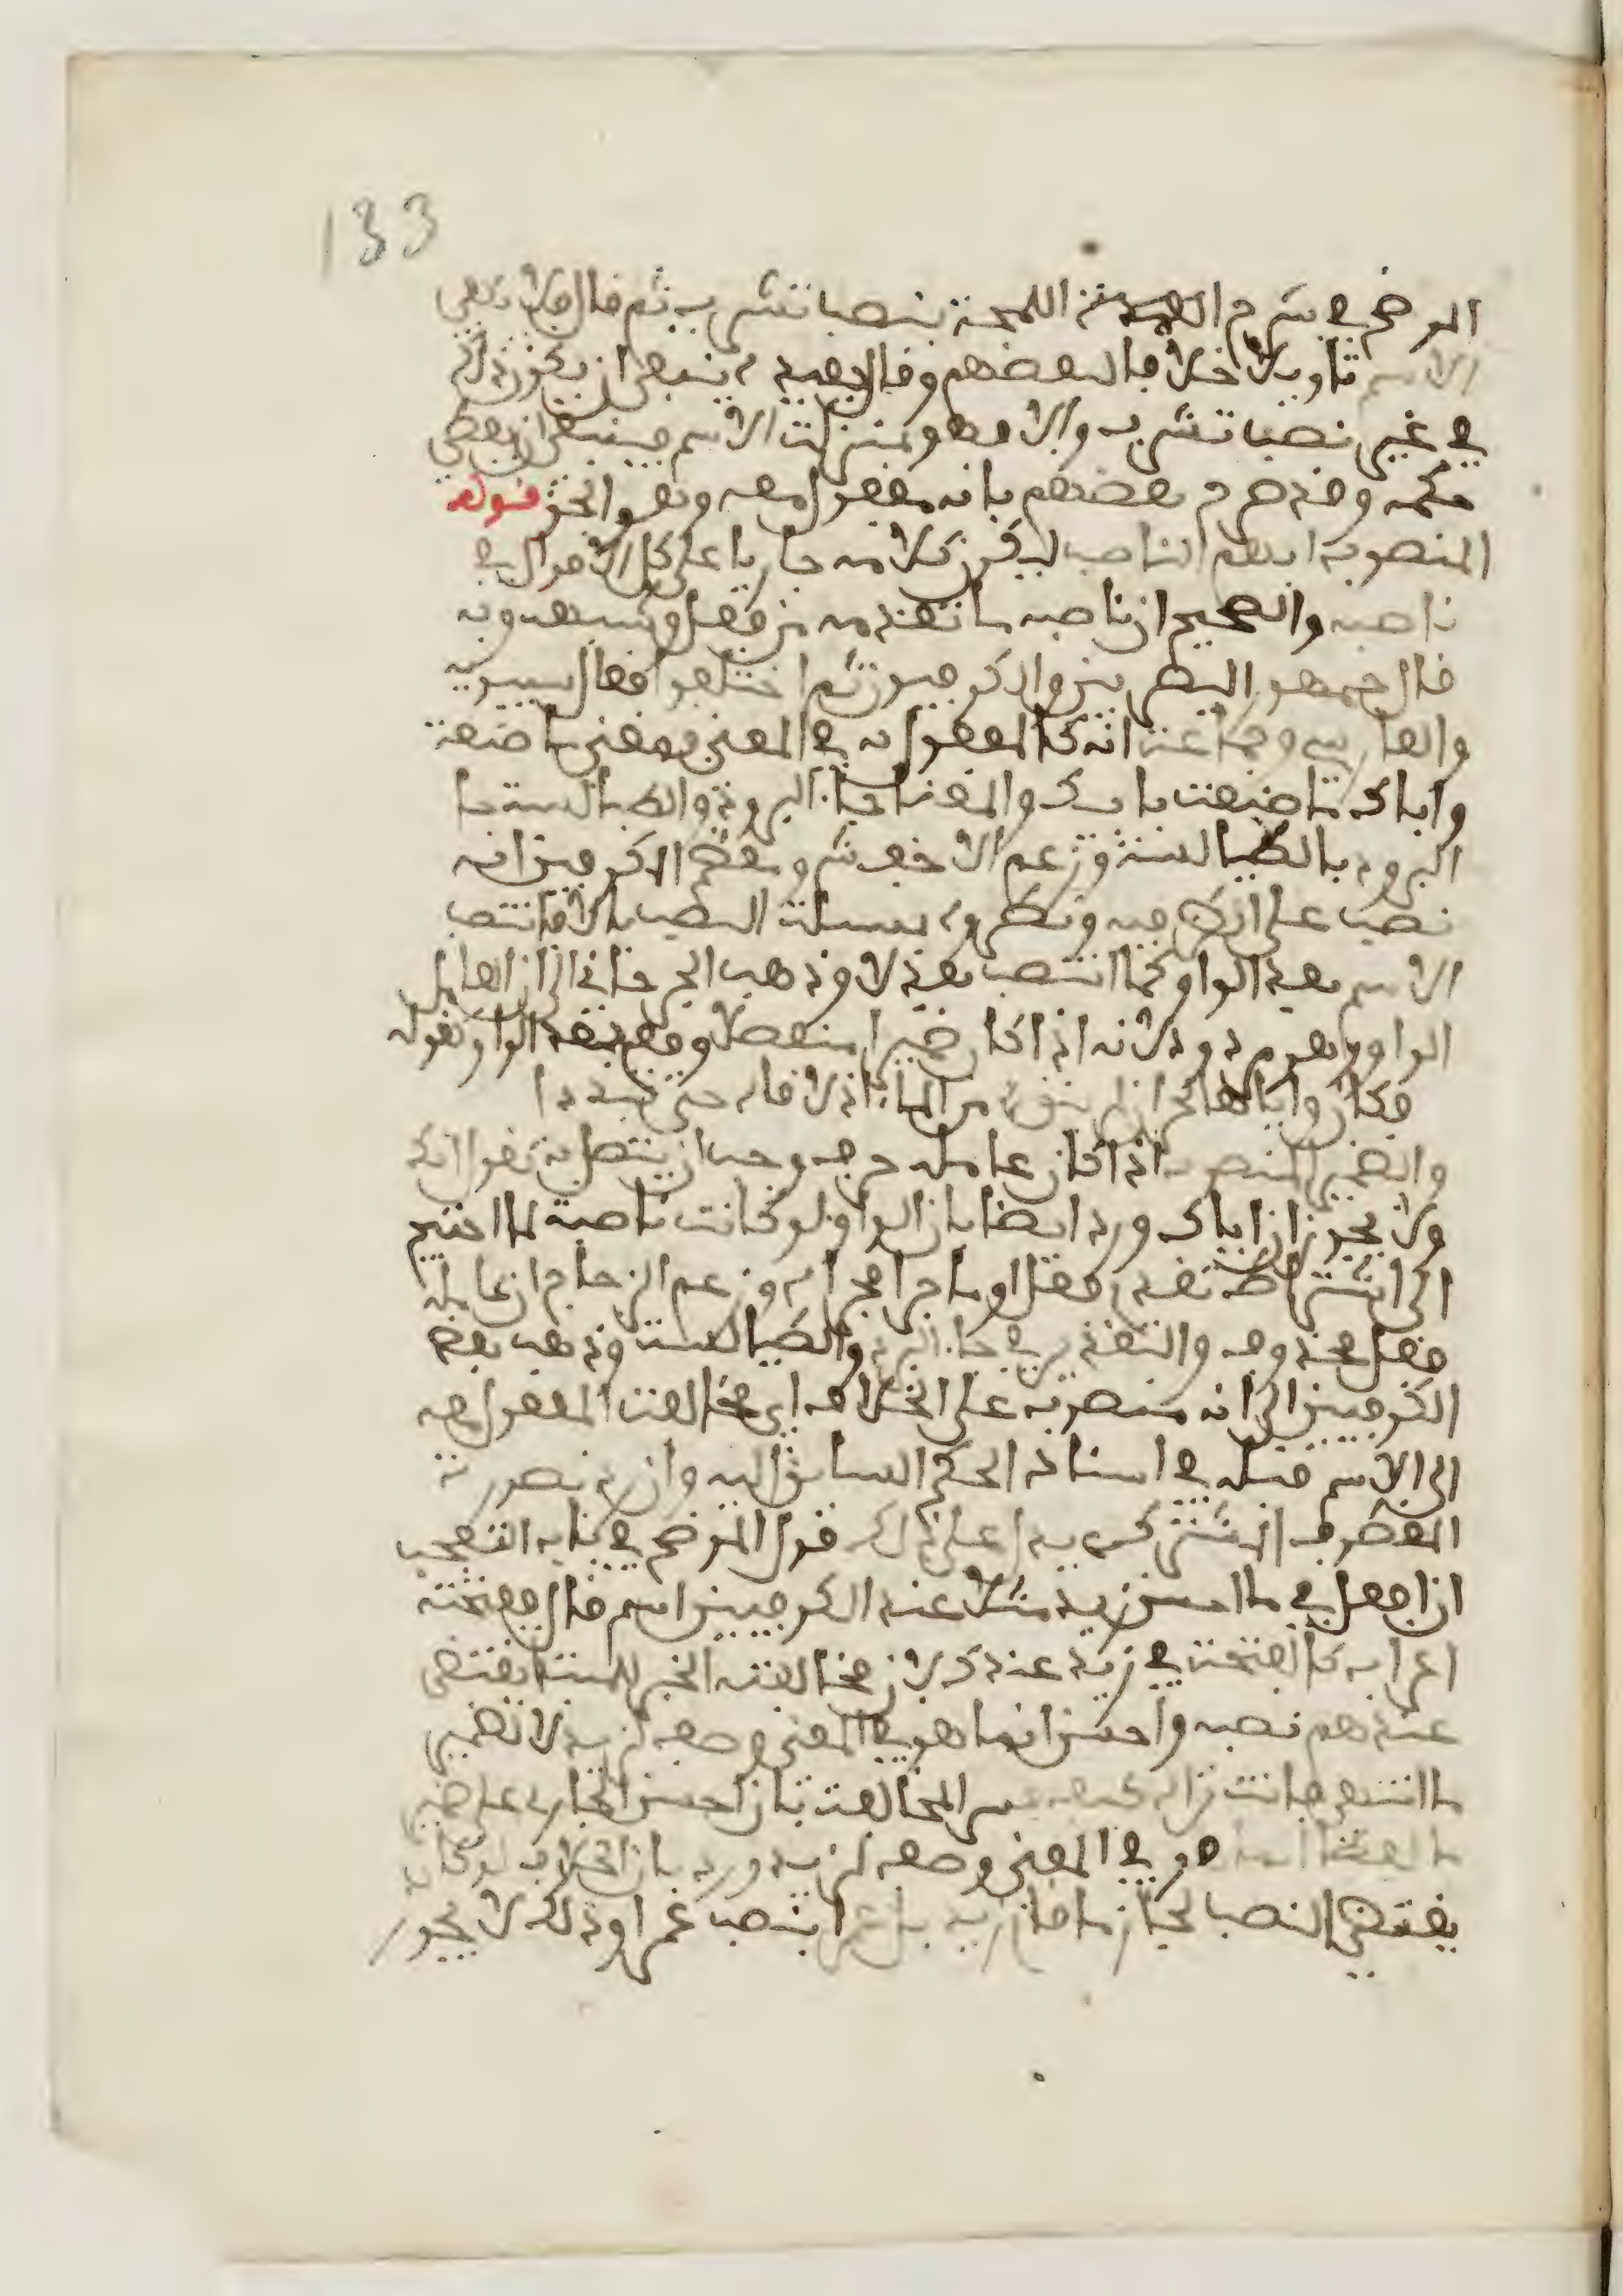 133
الموضح في شرح اللمحة بنصبا تشرب ثم قال فلا تكفي
الاسم تاويلا خلافا لبعضهم وقال بعيد ينبغي ان يكون ذلك
في غير نصبا تشرب والا فهو بمنزلة الاسم فينبغي ان يعطى
حكمه وقد صرح بعضهم بانه مفعول معه وهو الحق قوله
المنصوب ابهم الناصب ليكون كلامه جاريا على كل الاقوال في
ناصبه والصحيح ان ناصبه ما تقدمه من فعل وشبهه وبه
قال جمهور البصريين والكوفيين ثم اختلفوا فقال سيبويه
والفارسي وجماعة انه كالمفعول به في المعنى فمعنى ما صنعت
واباك ما صنعت بابيك والمعنى جاء البرد والطيالسة جا
البرد بالطيالسة وزعم الاخفش وبعض الكوفيين انه
نصب على الظرفية ونظروه بمسئلة النصب بالا فانتصب
الاسم بعد الواو كما انتصب بعد الا وذهب الجرجاني الى ان العامل
الواو وهو مردود لانه اذا كان ضميرا منفصلا وقع بعد الواو كقوله
فكان واياها كحران لم يفق من الماء اذ لاقاه حتى تقددا
والضمير المنصوب اذا كان عامله حرفا وجب ان يتصل به تقول انك
ولا يجوز ان اياك ورد ايضا بان الواو لو كانت ناصبة لما احتيج
الى اشتراط تقدم فعل او ما جرا مجراه وزعم الزجاج ان عامله
فعل محذوف والتقدير في جاء البرد والطيالسة وذهب بعض
الكوفيين الى انه منصوب على الخلاف اي مخالفة المفعول معه
الى الاسم قبله في اسناد الحكم السابق اليه وان نصورته
المعطوف على ذلك قول الموضح في باب التعجب
ان افعل في ما احسن زيد مثلا عند الكوفيين اسم قال ففتحته
اعرابه كالفتحة في زيد عندك لان مخالفة الخبر للمبتدا يقتضي
عندهم نصبه واحسن انما هو في المعنى وصف لزيد لا لضمير
ما انتهى المخالفة بان احسن الجار على ضمير
ما هو في المعنى وصف لزيد ورد بان الخلاف لو كان
يقتضي النصب لجاز ما قام زيد بل عمرا بنصب عمرا وذلك لا يجوز